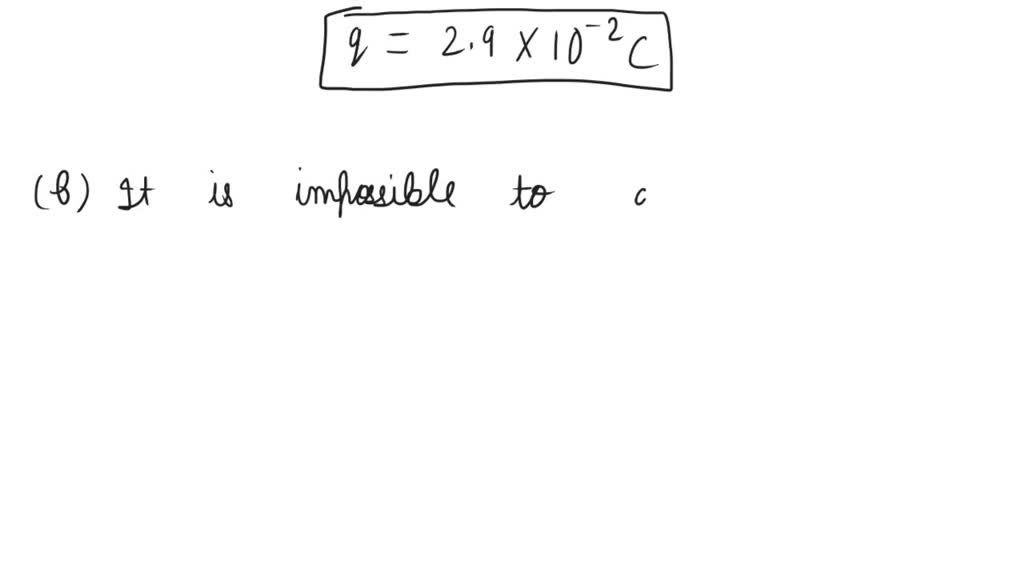 q = 2.9 × 10⁻² C
(b) It is impossible to c